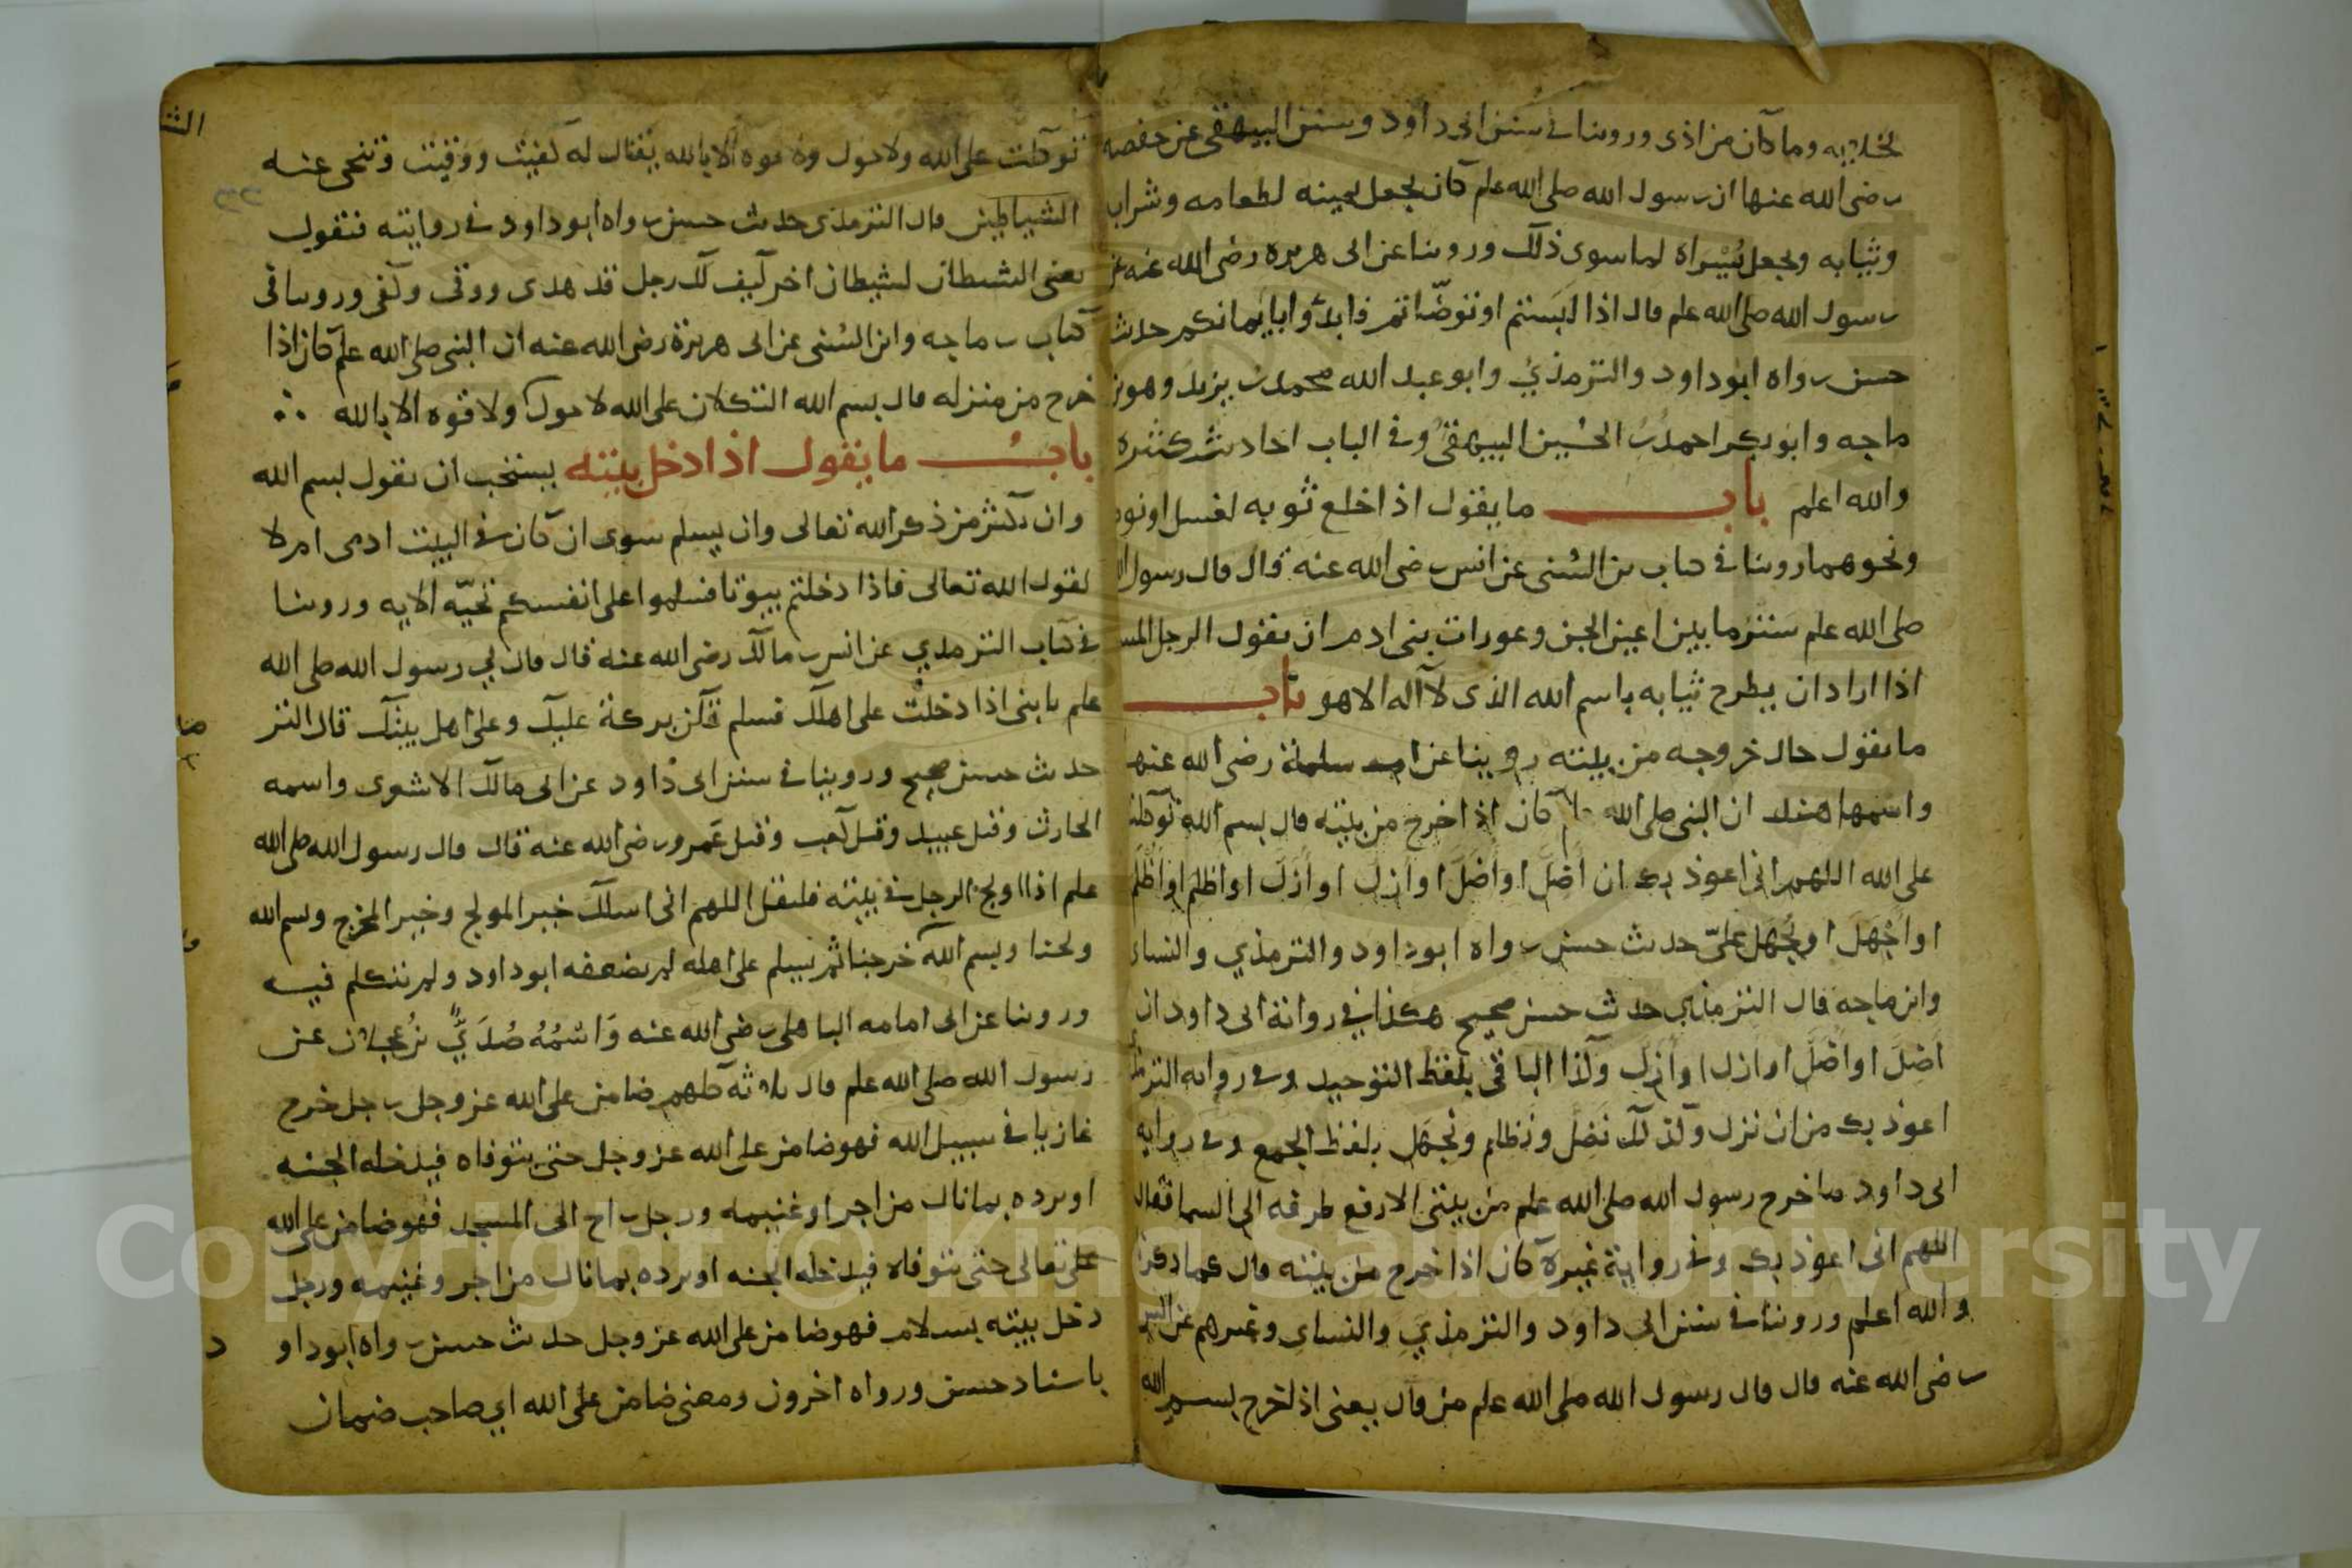 لخلايه وما كان من اذى وروينا في سنن ابى داود وسنن البيهقى عن حفصه
رضى الله عنها ان رسول الله صلى الله علم كان يجعل يمينه لطعامه وشرابه
وثيابه ويجعل يُسراه لما سوى ذلك وروينا عن ابى هريره رضى الله عنه عن
رسول الله صلى الله علم قال اذا لبستم او توضّاتم فابدؤا بايمانكم حديث
حسن رواه ابو داود والترمذي وابو عبد الله محمد بن يزيد وهو بن
ماجه وابو بكر احمد بن الحُسين البيهقى وفى الباب احاديث كثيره
والله اعلم باب ما يقول اذا خلع ثوبه لغسل او نوم
ونحوهما روينا في كتاب بن السُنى عن انس رضى الله عنه قال قال رسول الله
صلى الله علم ستر ما بين اعين الجن وعورات بنى ادم ان يقول الرجل المسلم
اذا اراد ان يطرح ثيابه باسم الله الذى لا اله الا هو باب
ما يقول حال خروجه من بيته روينا عن ام سلمة رضى الله عنها
واسمها هند ان النبى صلى الله كان اذا خرج من بيته قال بسم الله توكلت
على الله اللهم انى اعوذ بك ان اضِلَّ او اُضَلَّ او ازِل او اُزَل او اظلِم او اُظلَم
او اَجْهَلَ او يُجْهَل علىّ حديث حسن رواه ابو داود والترمذي والنساى
وابن ماجه قال الترمذي حديث حسن صحيح هكذا في رواية ابى داود ان
اضل او اضل او ازل او ازل وكذا الباقى بلفظ التوحيد وفى روايه الترمذى
اعوذ بك من ان نزل وكذلك نضل ونظلم ونجهل بلفظ الجمع وفى روايه
ابى داود ما خرج رسول الله صلى الله علم من بيتى الا رفع طرفه الى السما فقال
اللهم انى اعوذ بك وفى رواية غيره كان اذا خرج من بيته قال كما ذكرنا
والله اعلم وروينا في سنن ابى داود والترمذي والنساى وغيرهم عن انس
رضى الله عنه قال قال رسول الله صلى الله علم من قال يعنى اذا خرج بسم الله
توكلت على الله ولا حول ولا قوه الا بالله يقال له كفيت ووقيت وتنحى عنه
الشياطين قال الترمذى حديث حسن رواه ابو داود في روايته فيقول
يعنى الشيطان لشيطان اخر كيف لك رجل قد هدى ووقى وكفى وروينا فى
كتاب بن ماجه وابن السُنى عن ابى هريرة رضى الله عنه ان النبى صلى الله علم كان اذا
خرج من منزله قال بسم الله التكلان على الله لا حول ولا قوه الا بالله
باب ما يقول اذا دخل بيته يستحب ان يقول بسم الله
وان يكثر من ذكر الله تعالى وان يسلم سوى ان كان في البيت ادمى ام لا
لقول الله تعالى فاذا دخلتم بيوتا فسلموا على انفسكم تحيّه الايه وروينا
في كتاب الترمدي عن انس بن مالك رضى الله عنه قال قال لي رسول الله صلى الله
علم يا بنى اذا دخلت على اهلك فسلم تكن بركة عليك وعلى اهل بيتك قال التر
حديث حسن صحيح وروينا في سنن ابى داود عن ابى مالك الاشعرى واسمه
الحارث وقيل عبيد وقيل كعب وقيل عَمرو رضى الله عنه قال قال رسول الله صلى الله
علم اذا اولج الرجل في بيته فليقل اللهم انى اسلك خير المولج وخير المخرج وسم الله
ولجنا وبسم الله خرجنا ثم يسلم على اهله لم يضعفه ابو داود ولم يتكلم فيه
وروينا عن ابى امامه الباهلى رضى الله عنه وَاسْمُهُ صُدَيٌّ بن عجلان عن
رسول الله صلى الله علم قال ثلاثه كلهم ضامن على الله عز وجل رجل خرج
غازيا في سبيل الله فهو ضامن على الله عز وجل حتى يتوفاه فيدخله الجنه
او يرده بما نال من اجر او غنيمه ورجل راح الى المسجد فهو ضامن على الله
على تعالى حتى يتوفاه فيدخله الجنه او يرده بما نال من اجر وغنيمه ورجل
دخل بيته بسلام فهو ضامن على الله عز وجل حديث حسن رواه ابو داو د
باسناد حسن ورواه اخرون ومعنى ضامن على الله اي صاحب ضمان
Copyright © King Saud University